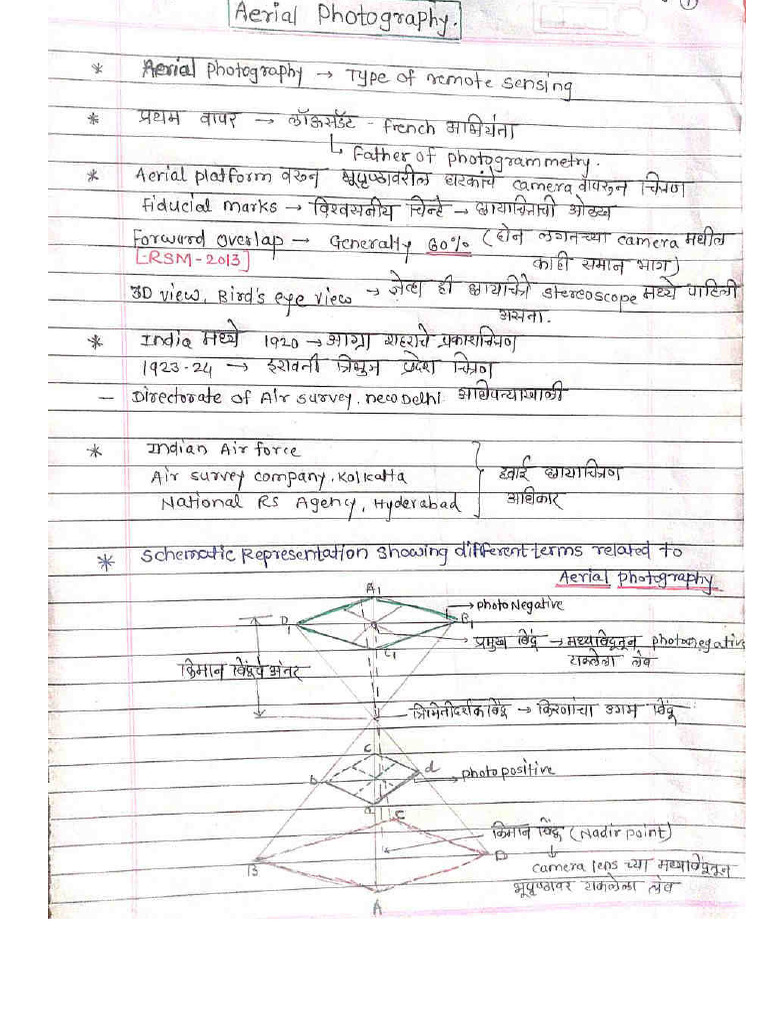 1
Aerial Photography.
* Aerial Photography → Type of remote sensing
* प्रथम वापर → लॉऊसडॅट - french अभियंता
↳ Father of photogrammetry.
* Aerial platform वरुन भूपृष्ठावरील घटकांचे camera वापरुन चित्रण
fiducial marks → विश्वसनीय चिन्हे → छायाचित्राची ओळख
Forward overlap → Generally 60% (दोन लगतच्या camera मधील
[-RSM-2013] काही समान भाग)
3D view, Bird's eye view → जेव्हा ही छायाचित्रे stereoscope मध्ये पाहिली
असता.
* India मध्ये 1920 → आग्रा शहराचे प्रकाशचित्रण
1923-24 → इरावती त्रिभुज प्रदेश चित्रण
- Directorate of Air survey, new Delhi. आधिपत्याखाली
* Indian Air force
Air survey company, Kolkatta
हवाई छायाचित्रण
National RS Agency, Hyderabad
अधिकार
* Schematic Representation showing different terms related to
Aerial photography
A1
photo Negative
D1
B1
प्रमुख बिंदू → मध्यबिंदूतून photonegative
C1
टाकलेला लंब
किमान बिंदूचे अंतर
→ किरणांचा उगम बिंदू
C
b
d
photo positive
a
C
किमान बिंदू (Nadir point)
B
D
camera lens च्या मध्यबिंदूतून
भूपृष्ठावर टाकलेला लंब
A